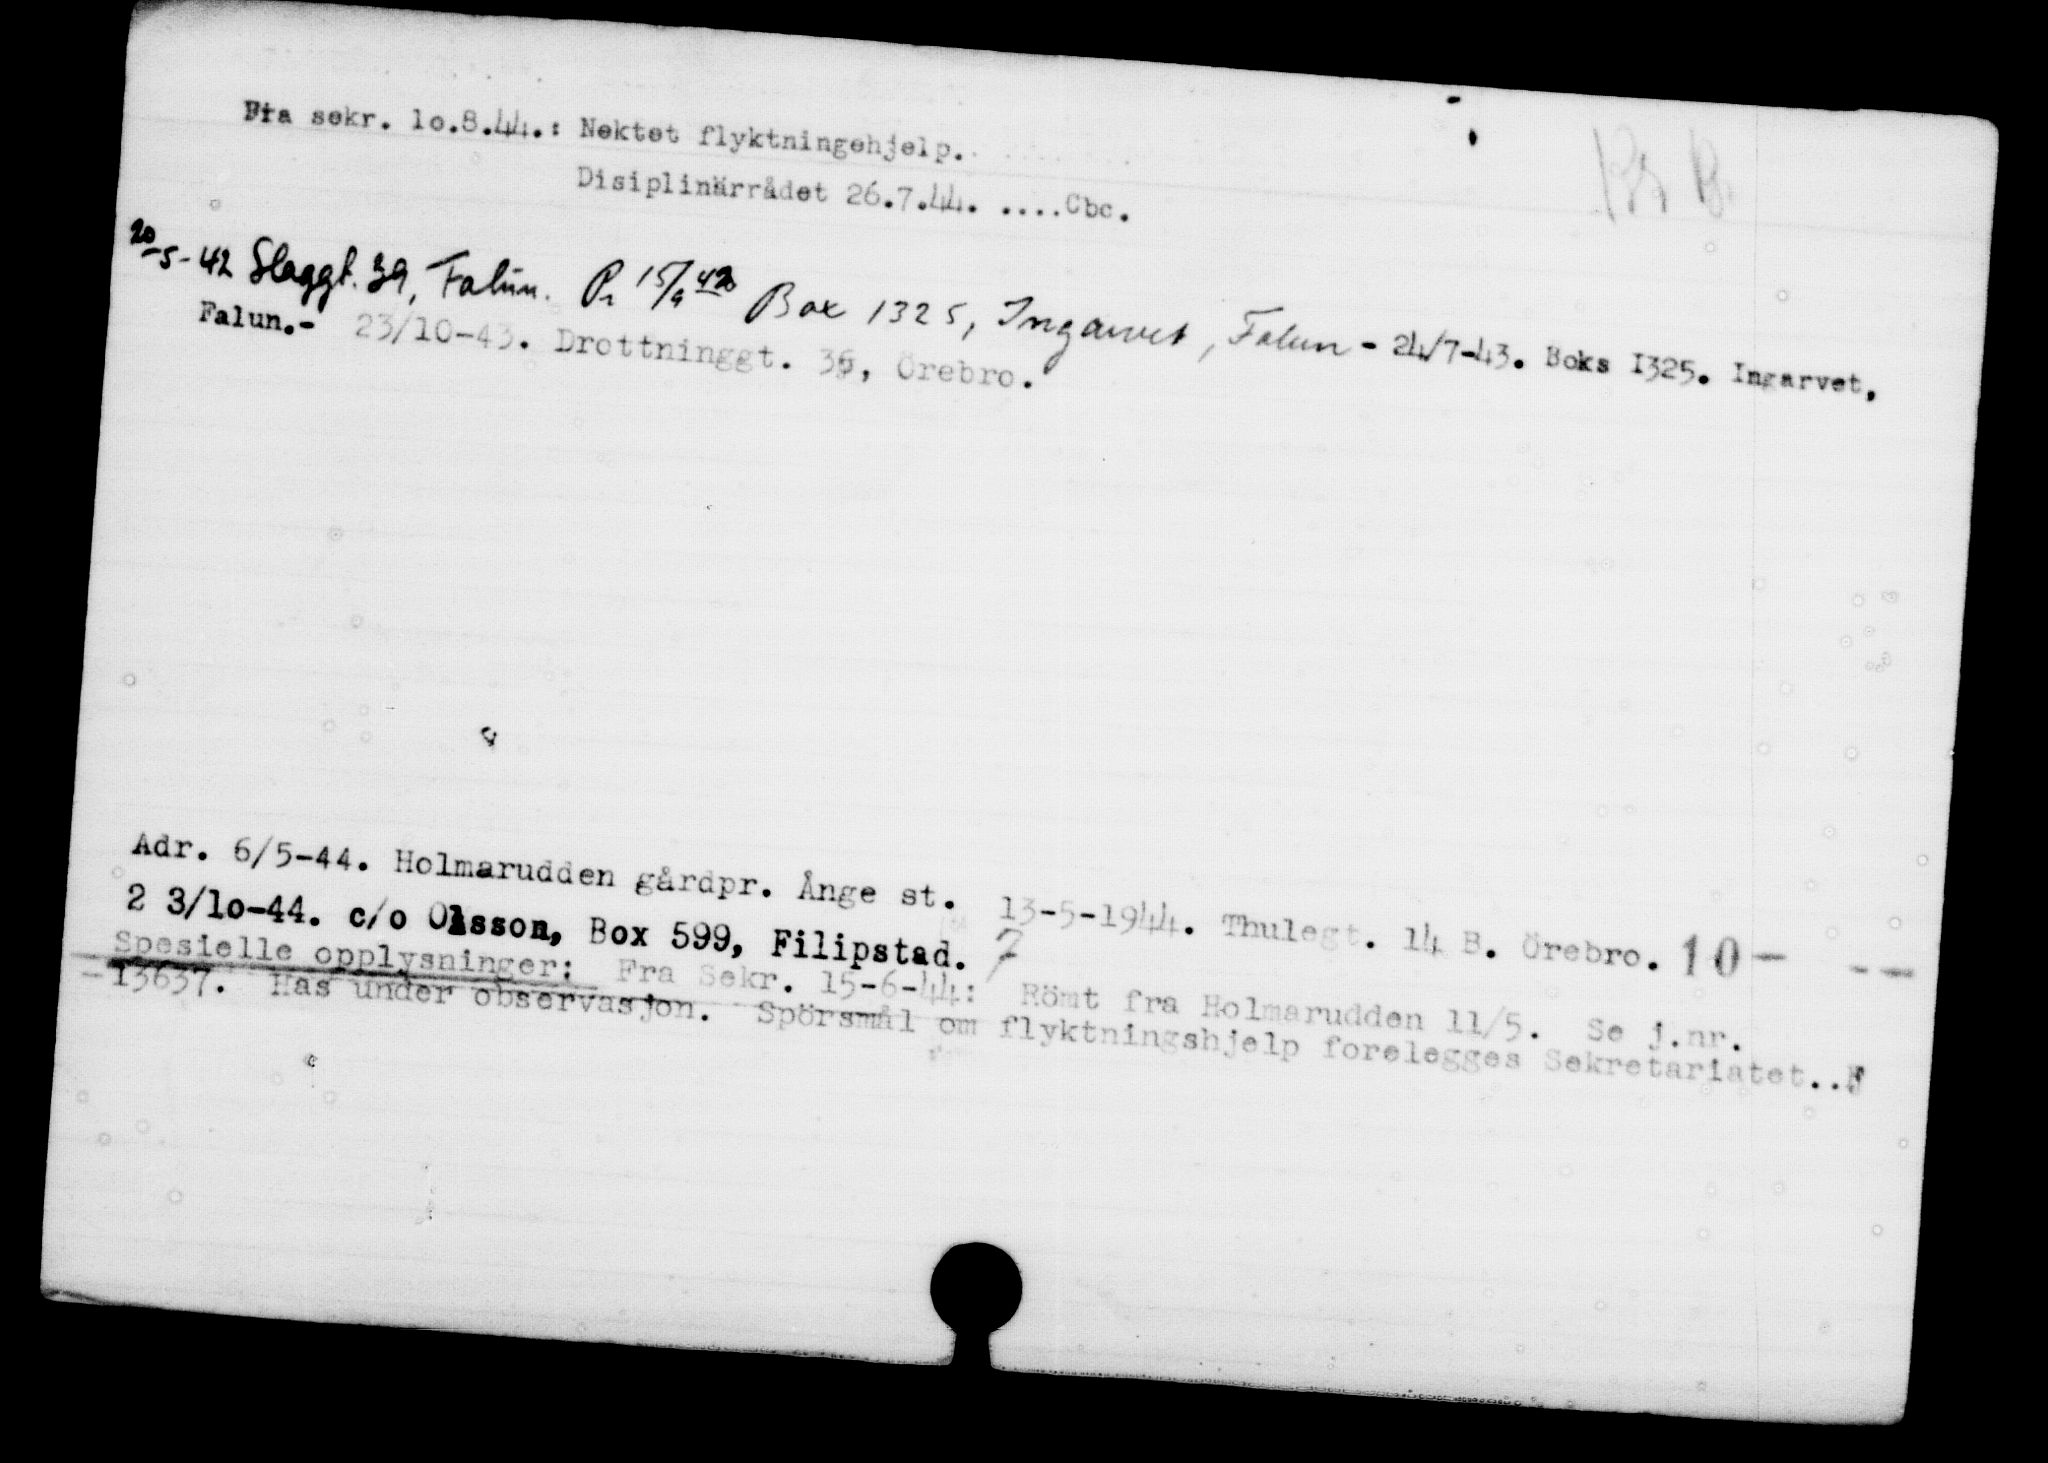 Fra sekr. 10.8.44.: Nektet flyktningehjelp.
Disiplinärrådet 26.7.44. ....Cbc.
20-5-42 Slaggt. 39, Falun. Pr 15/9 42 Box 1325, Ingarvet, Falun - 24/7-43. Boks 1325. Ingarvet,
Falun.- 23/10-43. Drottninggt. 36, Örebro.
Adr. 6/5-44. Holmarudden gårdpr. Ånge st. 13-5-1944. Thulegt. 14 B. Örebro. 10 - --
2 3/10-44. c/o Olsson, Box 599, Filipstad. 7
Spesielle opplysninger: Fra Sekr. 15-6-44: Römt fra Holmarudden 11/5. Se j.nr.
-13637. Has under observasjon. Spörsmål om flyktningshjelp forelegges Sekretariatet..